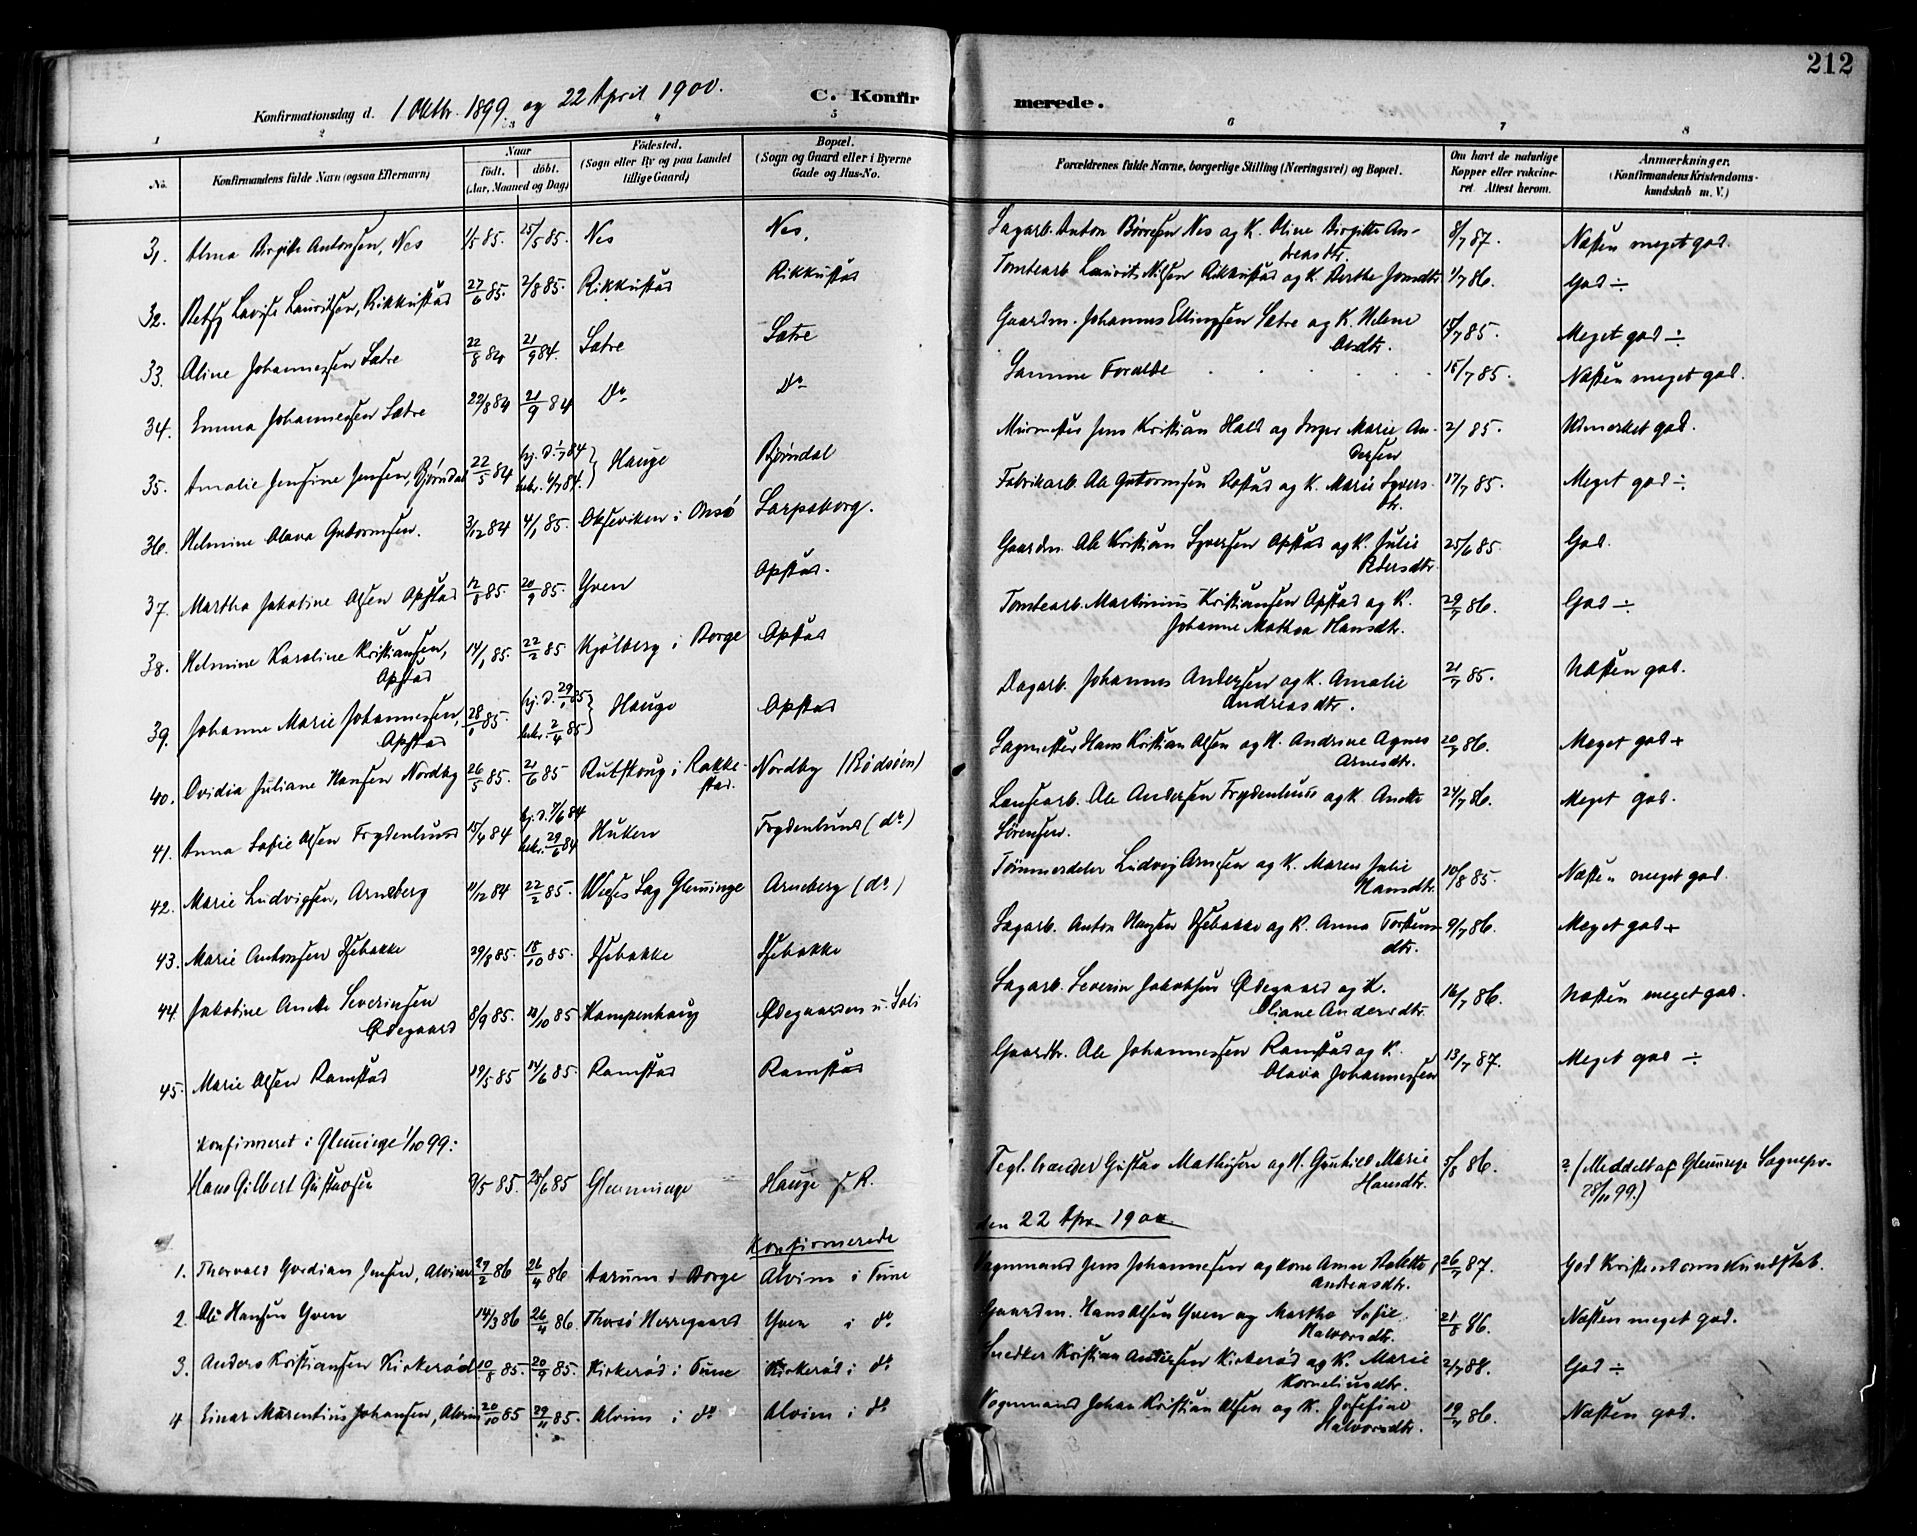 212
Konfirmationsdag d. 1 Oktbr. 1899 og 22 April 1900.
C. Konfirmerede.
1 2 3 4 5 6 7 8
No.
Konfirmandens fulde Navn (ogsaa Efternavn)
Naar
født. døbt.
(Aar, Maaned og Dag)
Fødested.
(Sogn eller By og paa Landet
tillige Gaard)
Bopæl.
(Sogn og Gaard eller i Byerne
Gade og Hus-No.
Forældrenes fulde Navne, borgerlige Stilling (Næringsvei) og Bopæl.
Om havt de naturlige
Kopper eller vakcine-
ret. Attest herom.
Anmærkninger.
(Konfirmandens Kristendoms-
kundskab m. V.)
31. Alma Birgitte Antonsen, Nes 1/5 85. 25/5 85. Nes Nes. Sagarb. Anton Børresen Nes og K. Oline Birgitte An- 8/7 87. Næsten meget god.
dreasdtr.
32. Betsy Lovise Lauritsen, Rikkustad 27/6 85. 2/8 85. Rikkustad Rikkustad Tomtearb. Laurits Nilsen Rikkustad og K. Berthe Jonsdtr 1/7 86. God ÷
33. Aline Johannessen Sætre 22/8 84 21/9 84. Sætre Sætre Gaardm. Johannes Ellingsen Sætre og K. Helene 15/7 85. Meget god ÷
Olsdtr.
34. Emma Johannessen Sætre 22/8 84 21/9 84 Do Do Samme Forældre 15/7 85. Næsten meget god.
35. Amalie Jensine Jensen, Bjørndal 22/5 84 hj. d. 1/7 84 Hauge Bjørndal Murmester Jens Kristian Hals og Inger Marie An- 2/ 85. Udmerket god.
bekr. 6/7 84. dersen
36. Helmine Olava Gutormsen. 3/12 84 4/1 85. Okseviken i Onsø Sarpsborg. Fabrikarb. Ole Gutormsen Rostad og K. Marie Syvers- 17/7 85. Meget god ÷
dtr.
37. Martha Jakobine Olsen Opstad 12/8 85. 20/9 85. Yven Opstad. Gaardm. Ole Kristian Syversen Opstad og K. Julie 25/6 85. God.
Pedersdtr.
38. Helmine Karoline Kristiansen, 14/1 85. 22/2 85 Kjølberg i Borge Opstad Tomtearb. Martinius Kristiansen Opstad og K. 29/7 86. God ÷
Opstad Johanne Mathea Hansdtr.
39. Johanne Marie Johannessen, 28/1 85. hj. d. 29/1 85 Hauge Opstad Dagarb. Johannes Andersen og K. Amalie 21/7 85. Næsten god.
Opstad bekr. 2/4 85 Andreasdtr.
40. Ovidia Juliane Hansen Nordby 26/5 85. 21/6 85 Rudskoug i Rakke- Nordby (Rødsøen) Sagmester Hans Kristian Olsen og K. Andrine Agnes 20/7 86. Meget god +
stad. Arnesdtr.
41. Anna Sofie Olsen Frydenlund 15/4 84 hj. d. 7/6 84 Huken Frydenlund (do) Landsearb. Ole Andersen Frydenlund og K. Anette 24/7 86. Meget god.
bekr. 29/6 84 Sørensen.
42. Marie Ludvigsen, Arneberg 11/12 84 22/2 85. Weses Sag Glemminge Arneberg (do) Tømmerdeler Ludvig Arnesen og K. Maren Julie 10/8 85. Næsten meget god.
Hansdtr.
43. Marie Antonsen Isebakke 29/8 85. 18/10 85. Isebakke Isebakke Sagarb. Anton Hansen Isebakke og K. Anna Torstens- 9/7 86. Meget god +
dtr.
44. Jakobine Anette Severinsen 8/9 85. 18/10 85 Kampenhaug Ødegaarden u. Soli Sagarb. Severin Jakobsen Ødegaard og K. 16/7 86. Næsten meget god.
Ødegaard Oliane Andersdtr.
45. Marie Olsen Ramstad 19/5 85 14/6 85. Ramstad Ramstad Gaardbr. Ole Johannessen Ramstad og K. 13/7 87. Meget god ÷
Olava Johannessen
Konfirmeret i Glemminge 1/10 99:
Hans Gilbert Gustavsen 9/5 85. 28/6 85 Glemminge Hauge i R. Tegl. brænder Gustav Mathisen og K. Gunhild Marie 5/8 86. ? (Meddelt af Glemminge Sognepr.
Hansdtr. 28/11 99.)
Konfirmerede den 22 Apr. 1900.
1. Thorvald Gvedian Jensen, Alvim 27/2 86 26/4 86 Aarum i Borge Alvim i Tune Vognmand Jens Johannesen og kone Anne Babette 26/7 87. God Kristendomskundskab.
Andreasdtr.
2. Ole Hansen Yven 14/3 86 26/4 86 Thorsø Herregaard Yven i do Gaardm. Hans Olsen Yven og Martha Sofie 21/8 86. Næsten meget god.
Halvorsdtr.
3. Anders Kristiansen Kirkerød 10/8 85. 20/9 85. Kirkerød i Tune Kirkerød i do Snedker Kristian Andersen Kirkerød og K. Marie 2/7 88. God ÷
Korneliusdtr.
4 Einar Marentius Johansen, Alvim 20/10 85 29/11 85. Alvim i do Alvim i do Vognmand Johan Kristian Olsen og K. Josefine 19/7 86. Næsten god.
Halvorsdtr.